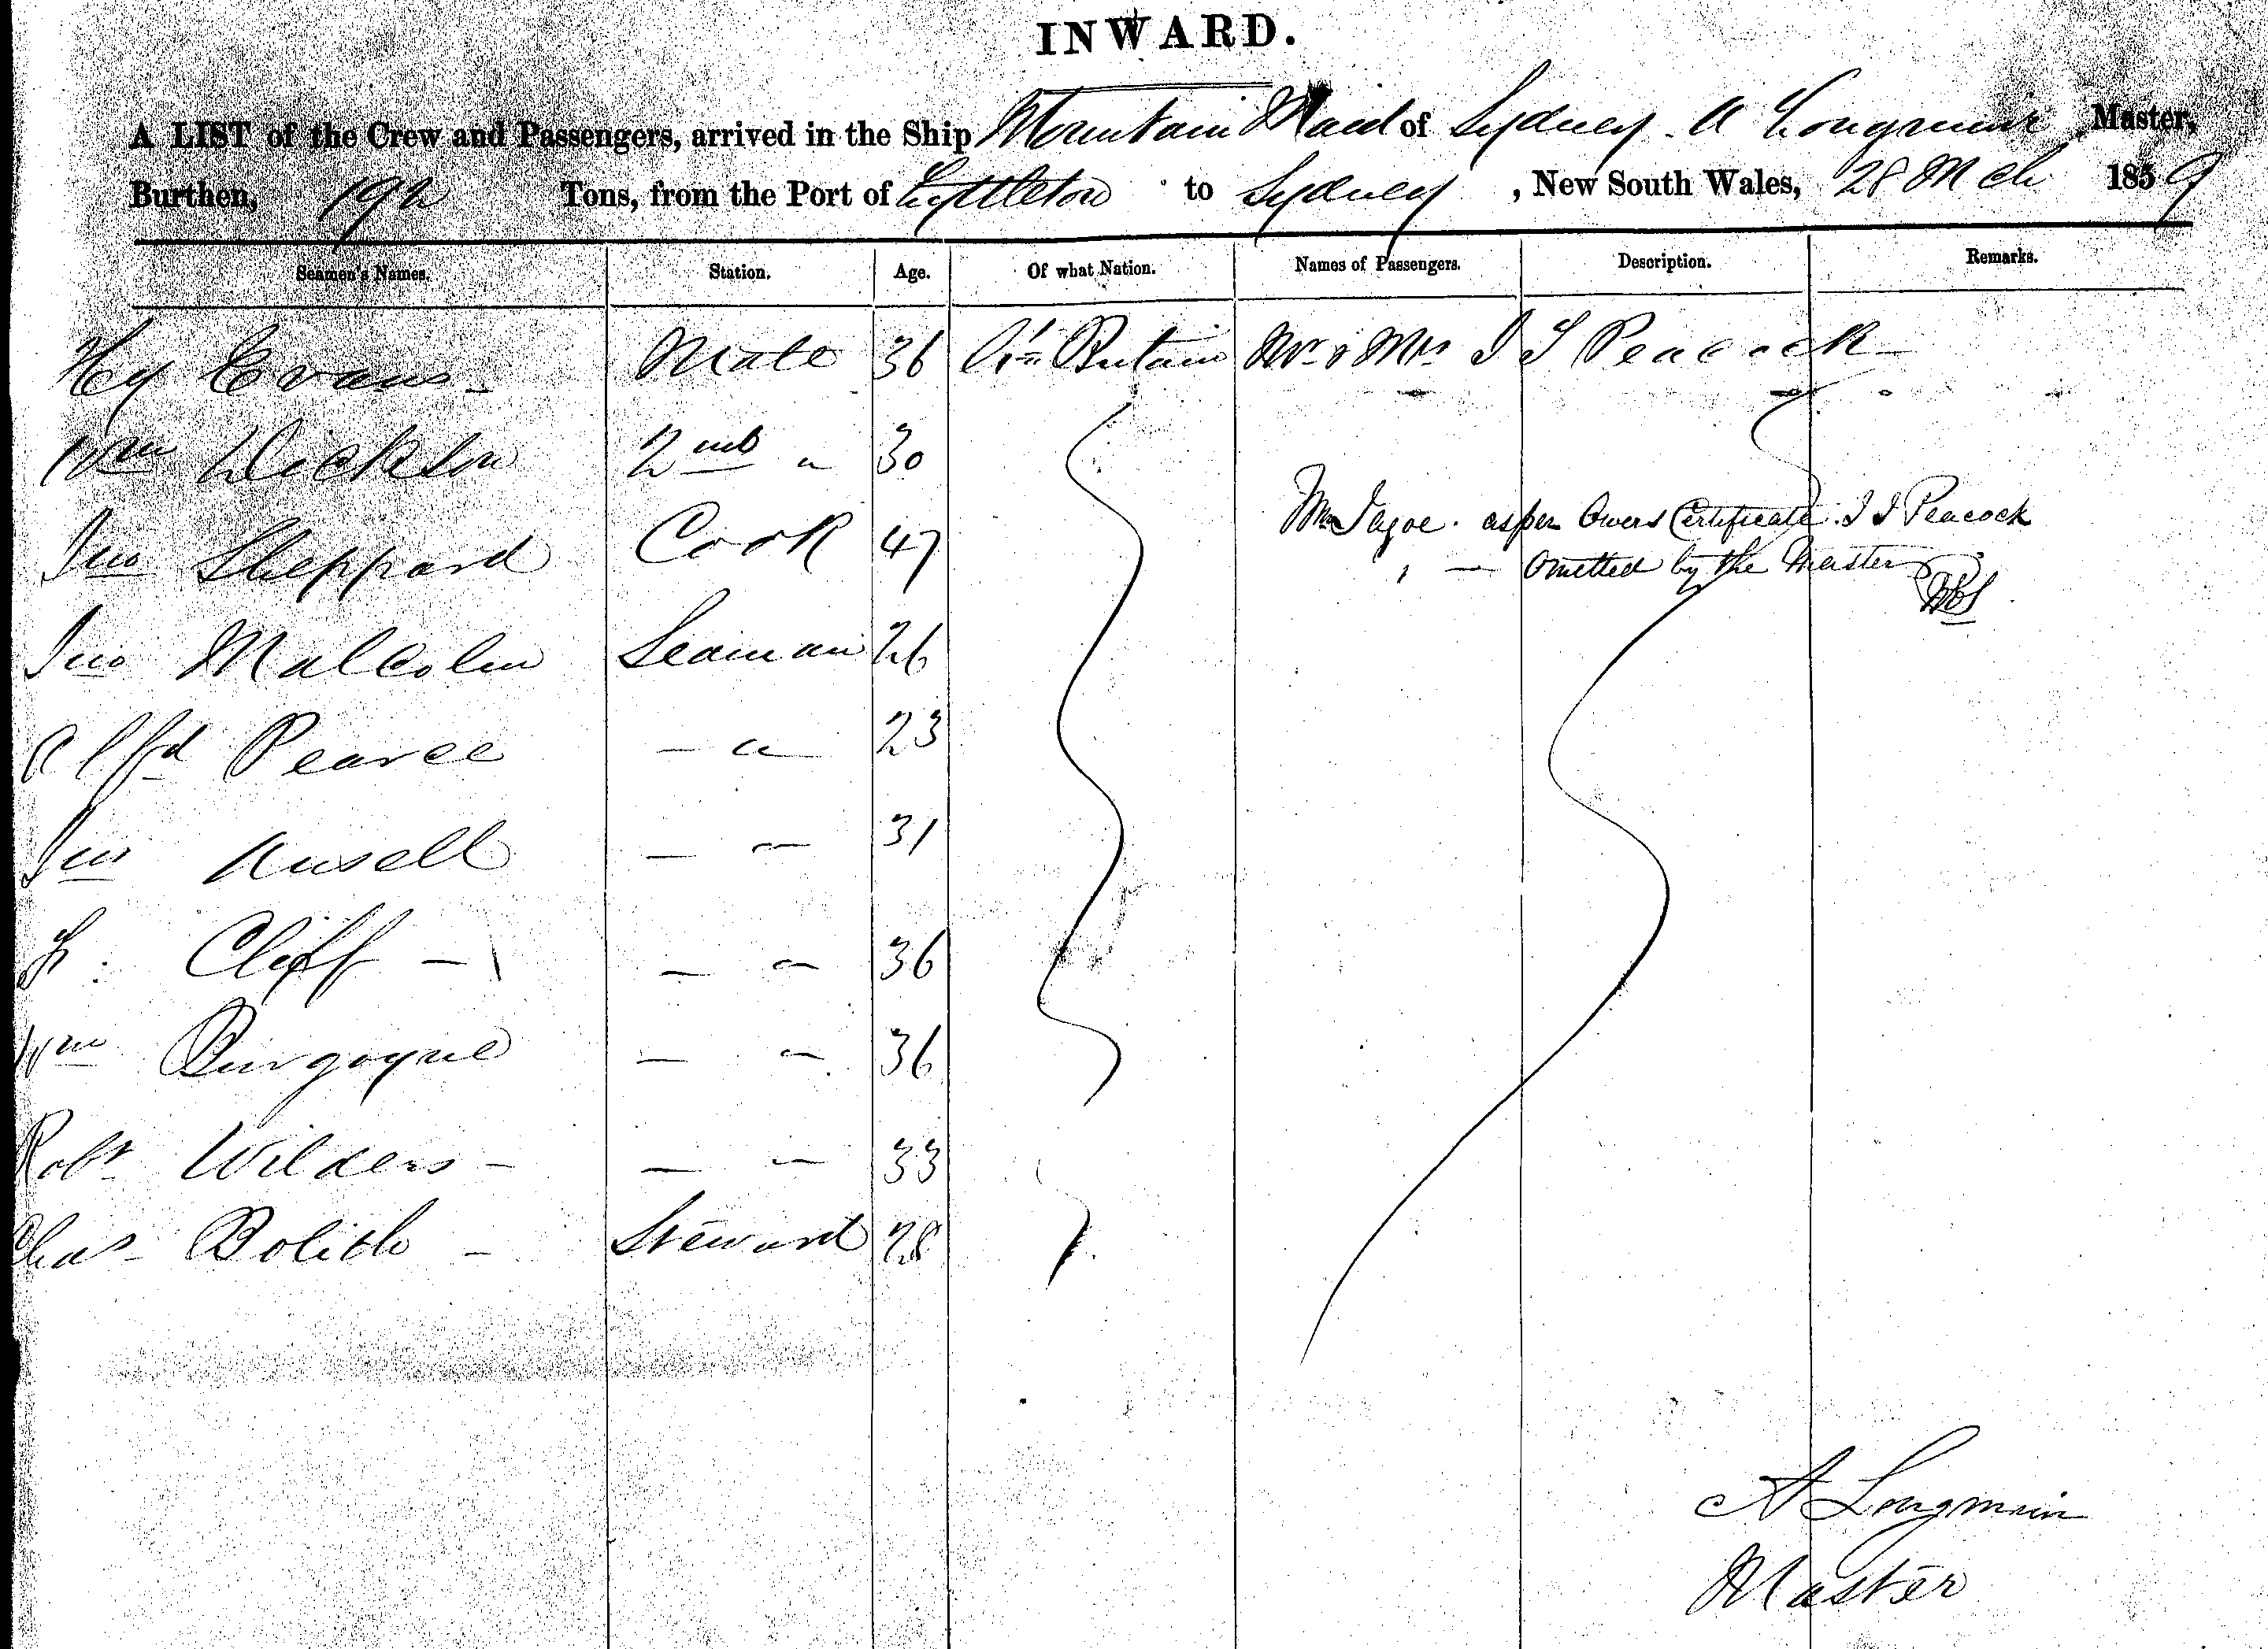 INWARD.
A LIST of the Crew and Passengers, arrived in the Ship Mountain Maid of Sydney. A Longmuir Master,
Burthen, 192 Tons, from the Port of Lyttleton to Sydney, New South Wales, 28 Mch 1859
Seamen's Names. Station. Age. Of what Nation. Names of Passengers. Description. Remarks.
Hy Evans - Mate 36 Gt Britain Mr & Mrs J J Peacock
Wm Dickson 2nd " 30
Mr Jagoe. as per Owers Certificate. J J Peacock
Jno Sheppard Cook 47
" — Omitted by the Master
Jno Malcolm Seaman 26
Alfd Pearce — " 23
Jno Rusell — " 31
Cliff — — " 36
Wm Burgoyne — " 36
Robt Wilders — — " 33
Chas Bolith — Steward 28
A Longmuir
Master